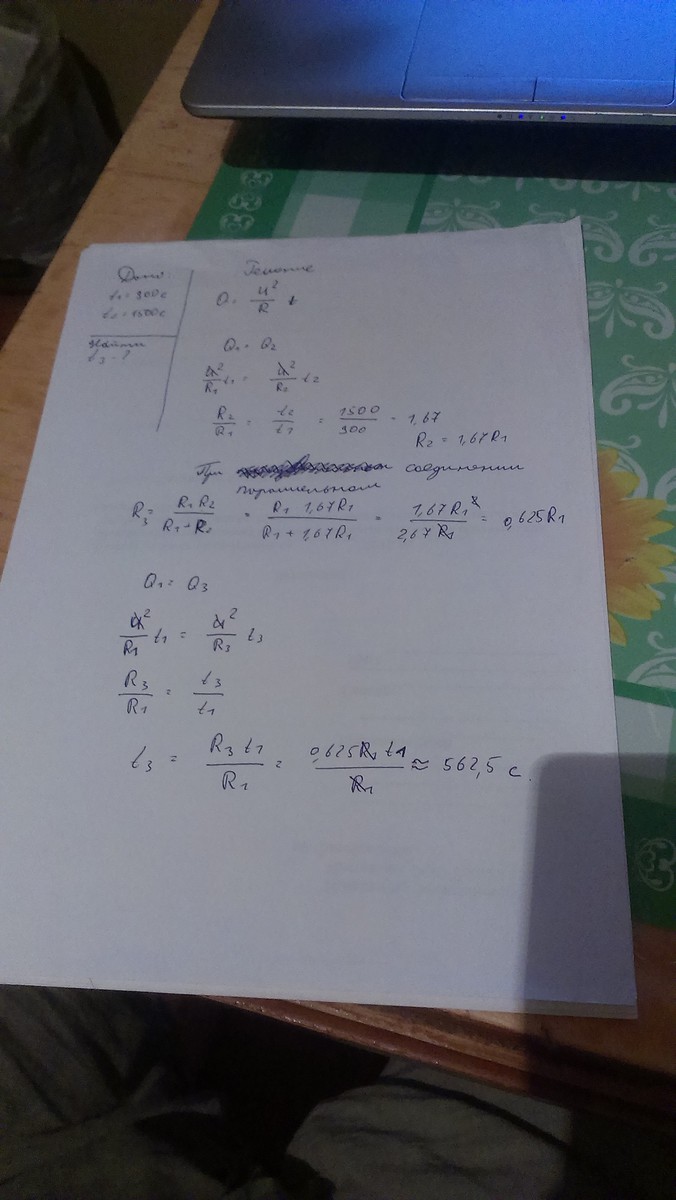 Дано:
t₁ = 900 c
t₂ = 1500 c
Найти
t₃ - ?
Решение
Q = U²/R t
Q₁ = Q₂
U²/R₁ t₁ = U²/R₂ t₂
R₂/R₁ = t₂/t₁ = 1500/900 = 1,67
R₂ = 1,67R₁
При соединении
паралельном
R₃ = R₁R₂/(R₁+R₂) = R₁ 1,67R₁/(R₁+1,67R₁) = 1,67R₁²/2,67R₁ = 0,625R₁
Q₁ = Q₃
U²/R₁ t₁ = U²/R₃ t₃
R₃/R₁ = t₃/t₁
t₃ = R₃ t₁/R₁ = 0,625R₁ t₁/R₁ ≈ 562,5 c.